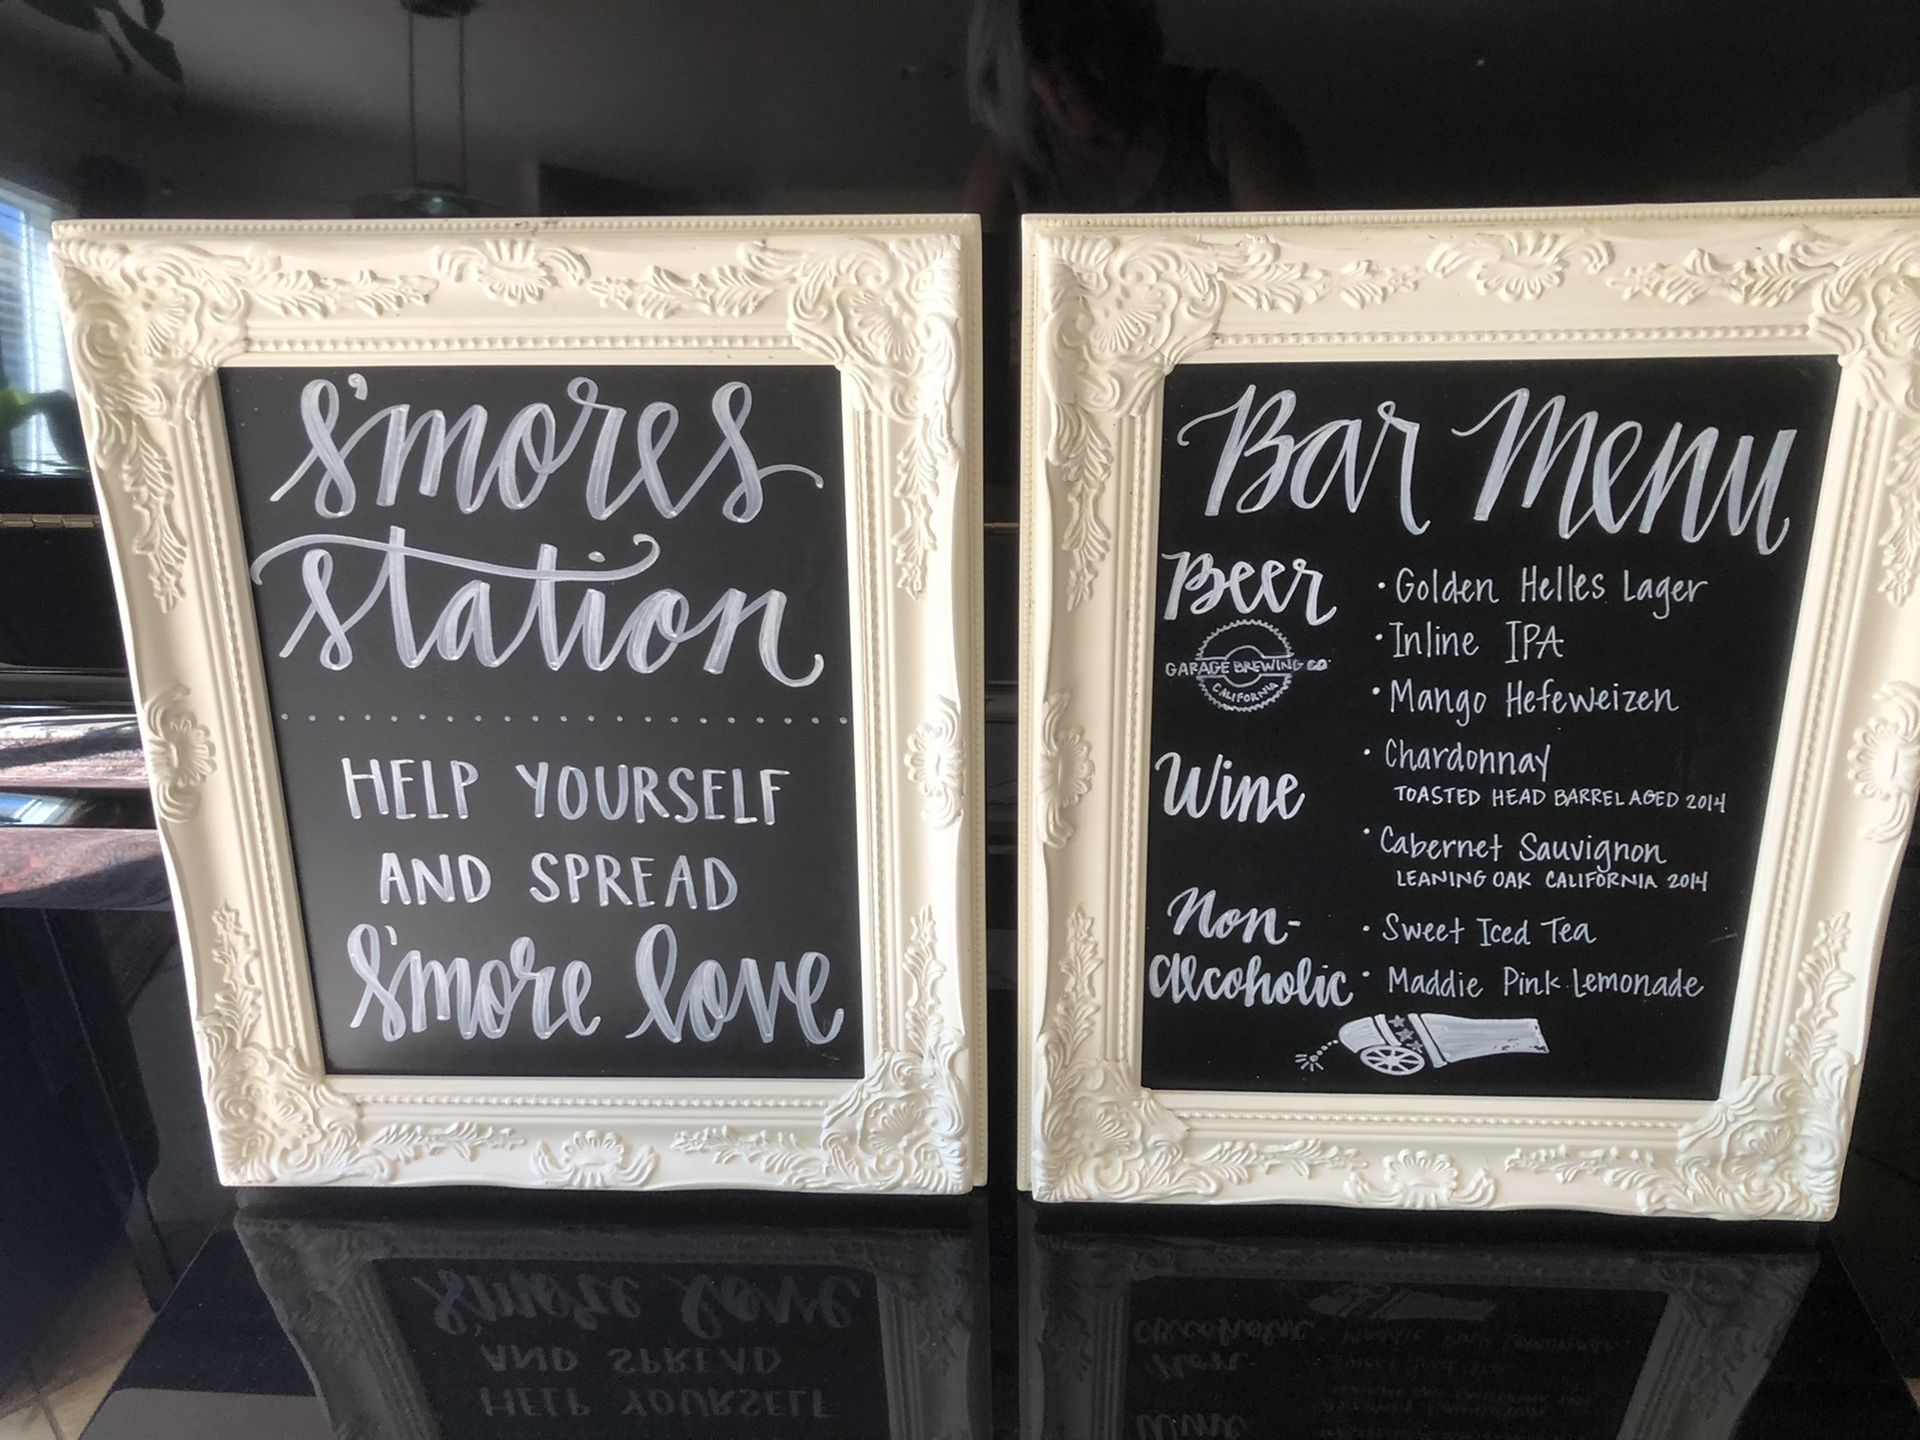 s'mores
station
HELP YOURSELF
AND SPREAD
s'more love
Bar Menu
Beer
GARAGE BREWING CO.
CALIFORNIA
• Golden Helles Lager
• Inline IPA
• Mango Hefeweizen
Wine
• Chardonnay
TOASTED HEAD BARREL AGED 2014
• Cabernet Sauvignon
LEANING OAK CALIFORNIA 2014
Non-
Alcoholic
• Sweet Iced Tea
• Maddie Pink Lemonade